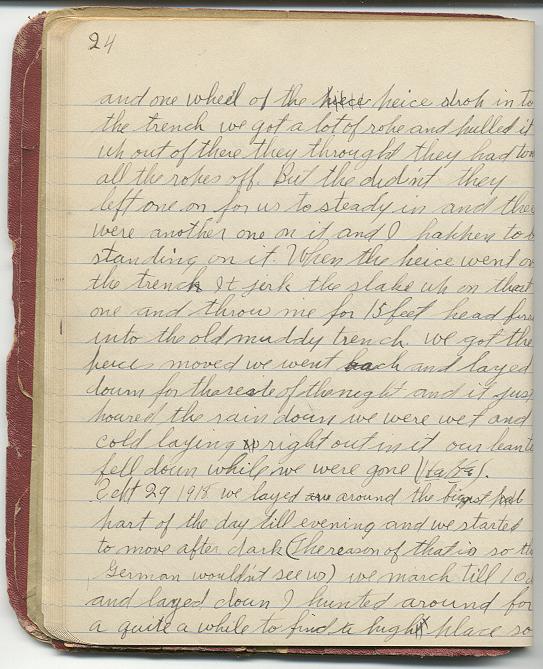 24
and one wheel of the peice drop in to
the trench we got a lot of rope and pulled it
up out of there they throught they had
all the ropes off. But the did'nt they
left one on for us to steady in and
were another one on it and I happen to
standing on it. When the peice went
the trench It jerk the slake up on that
one and throw me for 15 feet head
into the old muddy trench. we got the
peices moved we went back and layed
down for the reste of the night and it just
poured the rain down we were wet and
cold laying right out in it our
fell down while we were gone (Ha Ha).
Sept 29 1918 we layed around the bigest
part of the day till evening and we started
to move after dark (The reason of that is so
German would'nt see us) we march till 10
and layed down I hunted around for
a quite a while to find a high place so